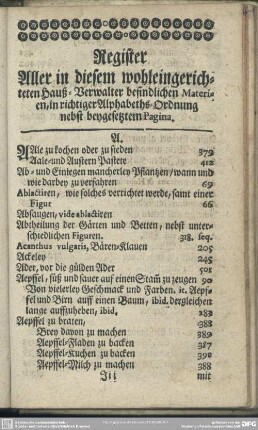 Register
Aller in diesem wohleingerich-
teten Hauß-Verwalter befindlichen Materi-
en, in richtiger Alphabeths-Ordnung
nebst beygesetztem Pagina.
A.
AAle zu kochen oder zu sieden 379
Aale-und Austern Pastete 412
Ab- und Einlegen mancherley Pflantzen, wann und
wie darbey zu verfahren 69
Ablactiren, wie solches verrichtet werde, samt einer
Figur 66
Absaugen, vide ablactiren
Abtheilung der Gärten und Betten, nebst unter-
schiedlichen Figuren. 318. seq.
Acanthus vulgaris, Bären-Klauen 205
Ackeley 245
Ader, vor die gülden Ader 501
Aepffel, süß und sauer auf einen Stam̄ zu zeugen 90
Von vielerley Geschmack und Farben. it. Aepf-
fel und Birn auff einen Baum, ibid. dergleichen
lange auffzuheben, ibid. 283
Aepffel zu braten, 388
Brey davon zu machen 389
Aepffel-Fladen zu backen 387
Aepffel-Kuchen zu backen 390
Aepffel-Milch zu machen 388
Jii mit